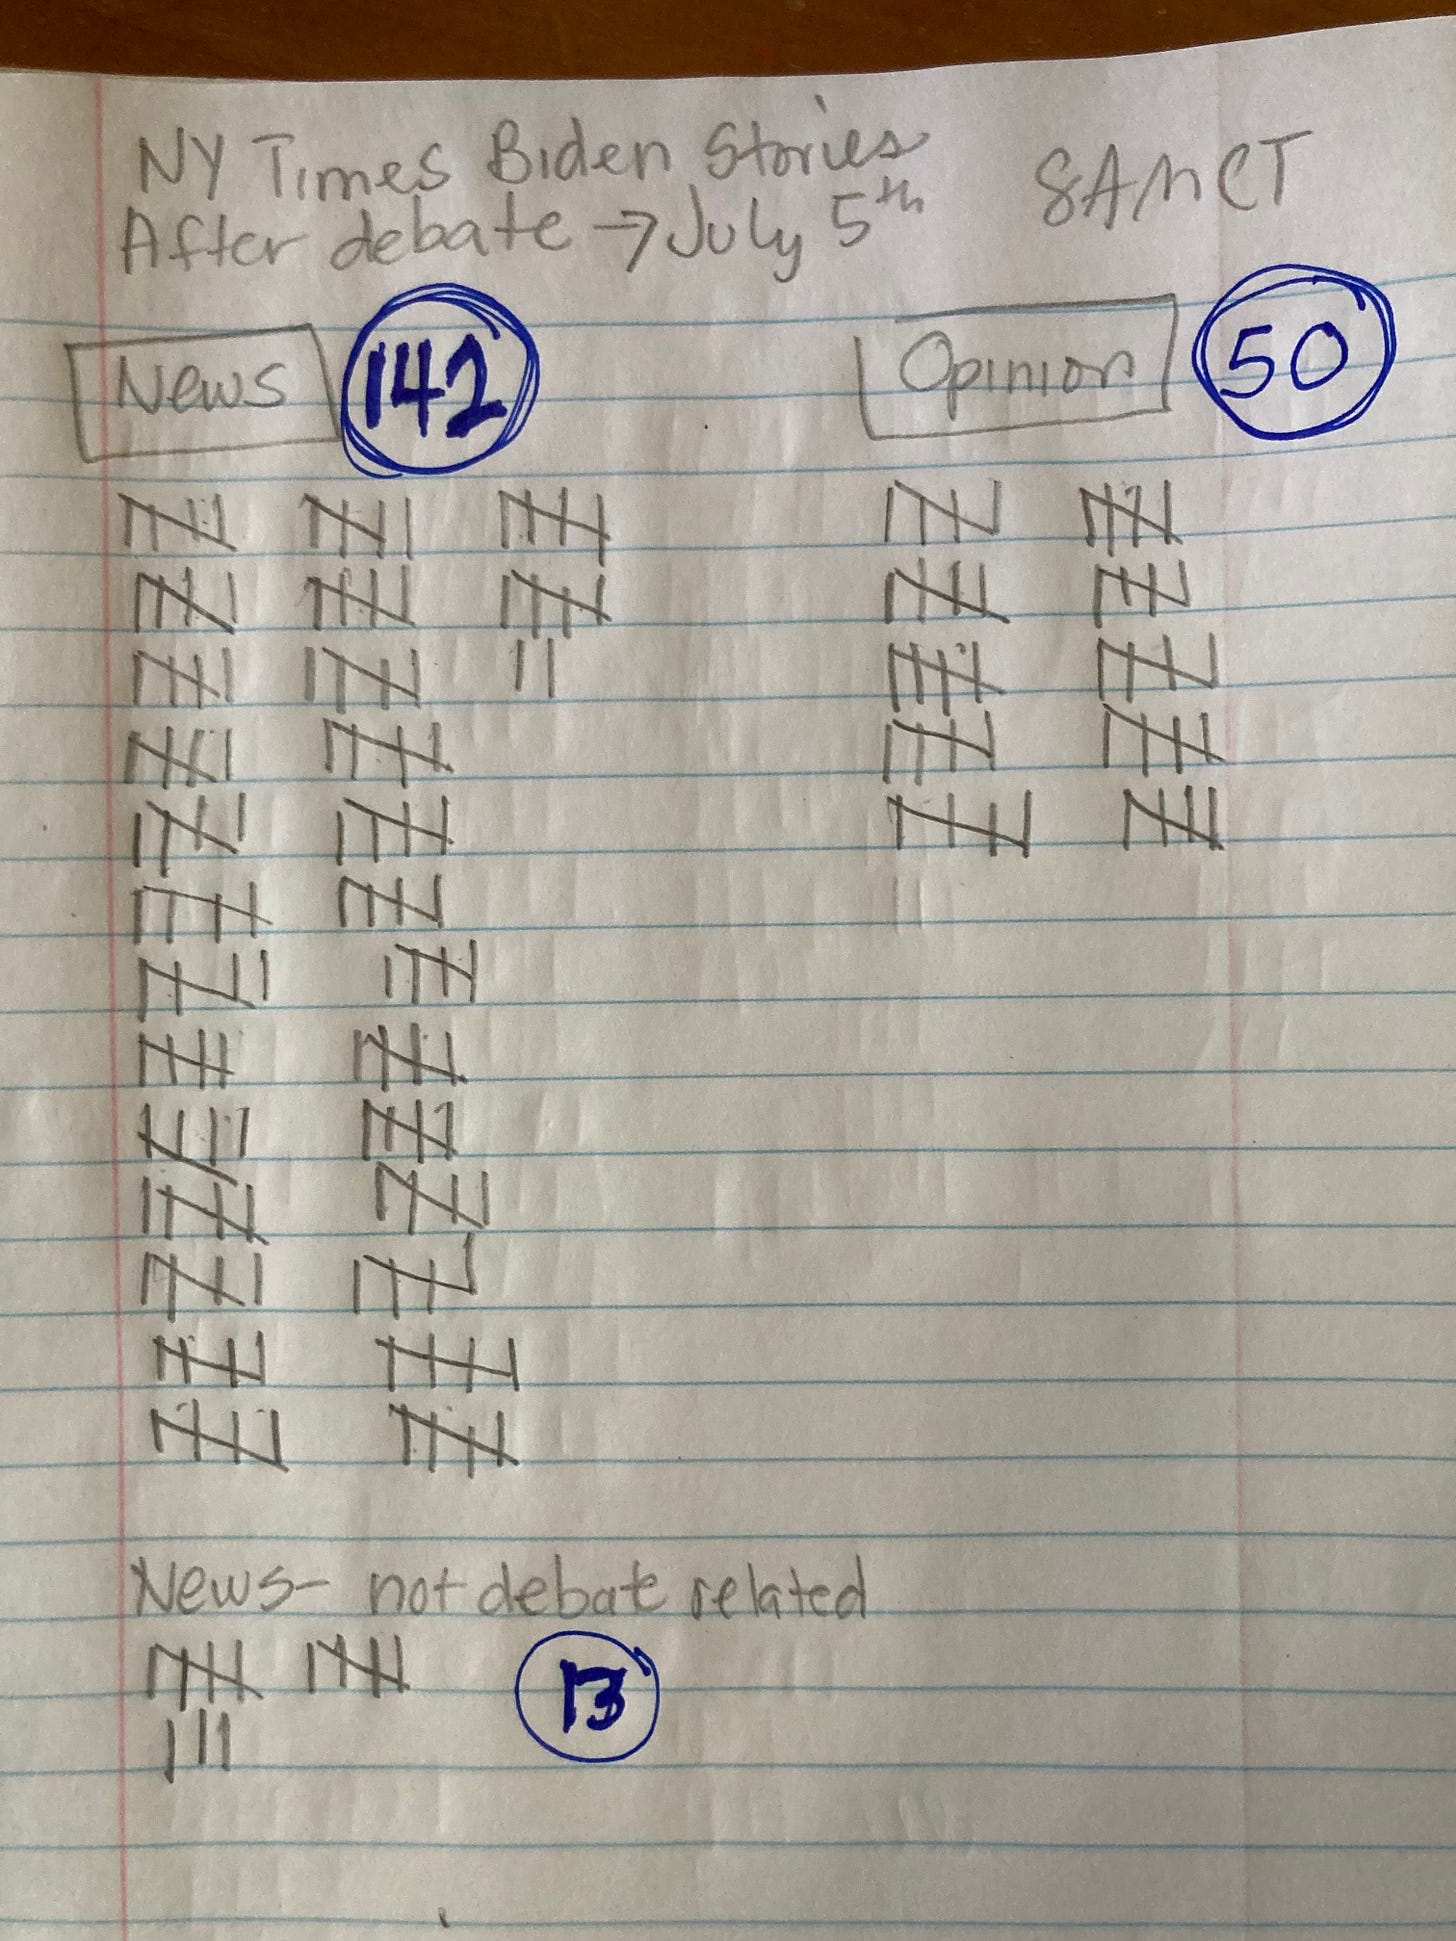 NY Times Biden Stories
After debate → July 5th 8AM CT
News 142 Opinion 50
News - not debate related
13